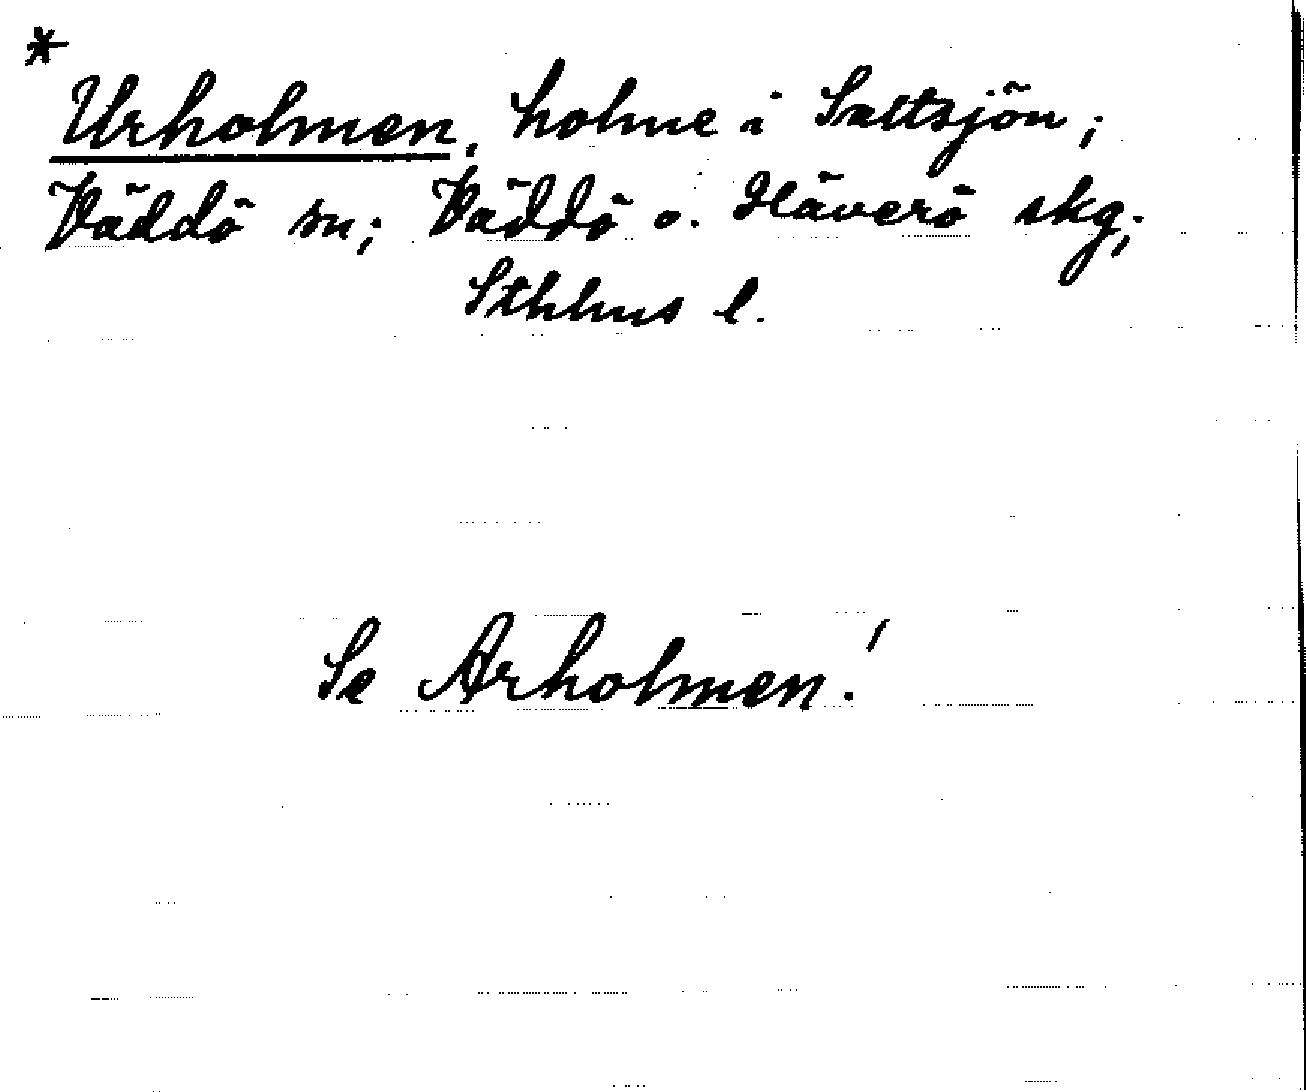 *
Urholmen, holme i Saltsjön;
Väddö sn; Väddö o. Häverö skg;
Sthlms l.
Se Arholmen!